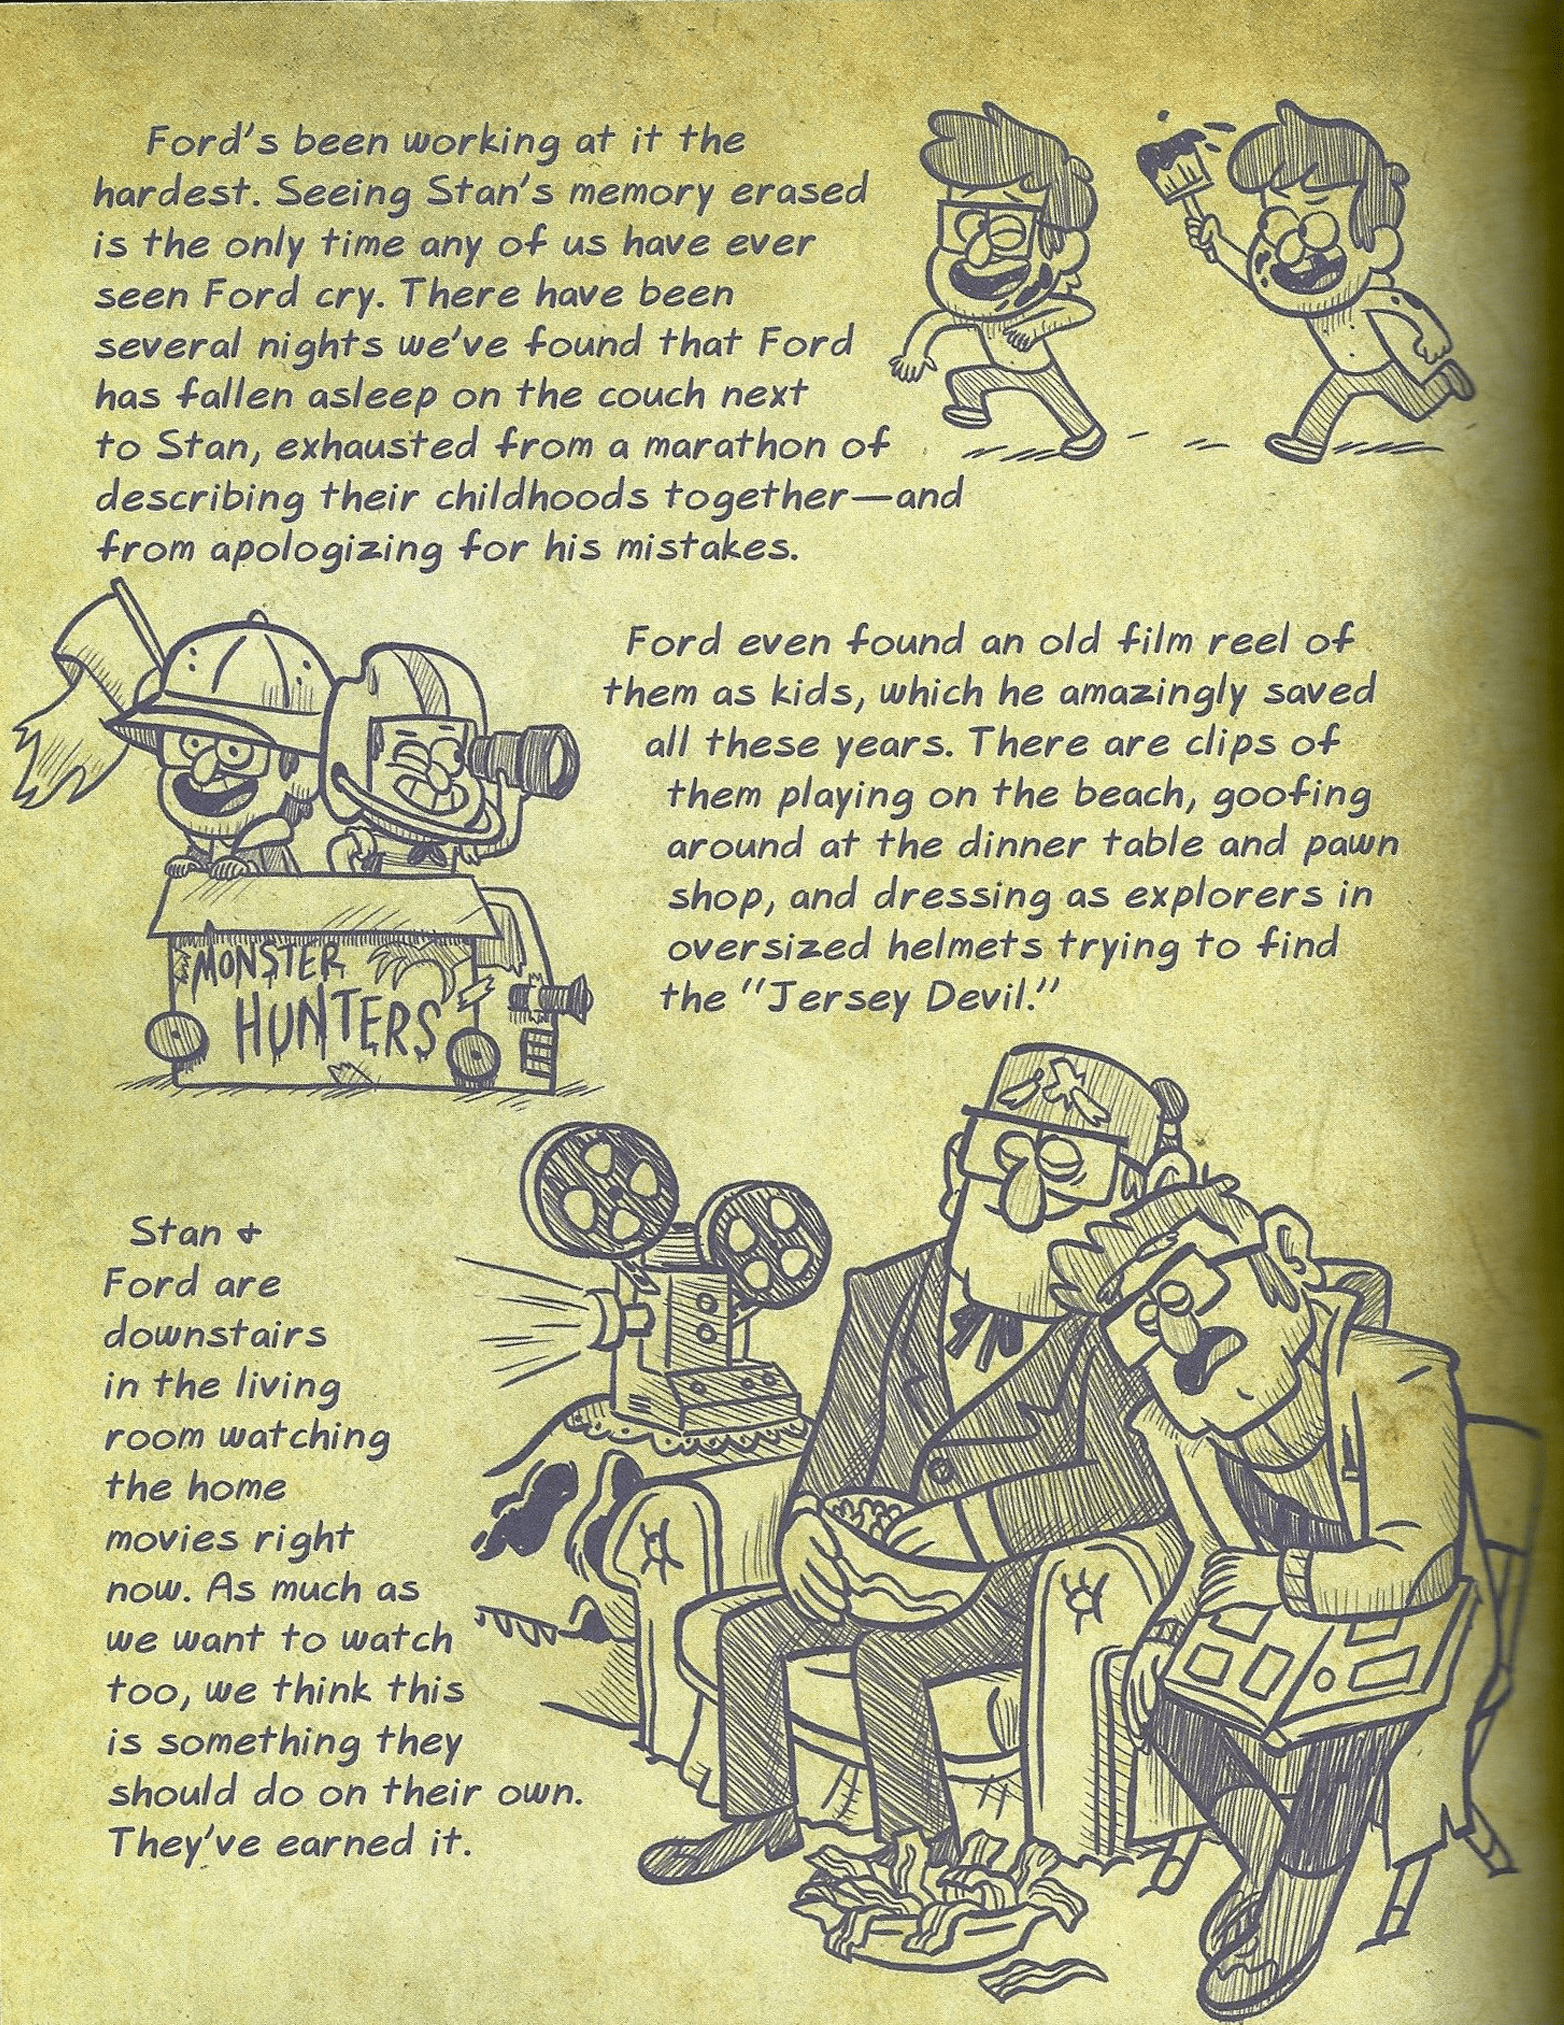 Ford's been working at it the
hardest. Seeing Stan's memory erased
is the only time any of us have ever
seen Ford cry. There have been
several nights we've found that Ford
has fallen asleep on the couch next
to Stan, exhausted from a marathon of
describing their childhoods together—and
from apologizing for his mistakes.
Ford even found an old film reel of
them as kids, which he amazingly saved
all these years. There are clips of
them playing on the beach, goofing
around at the dinner table and pawn
shop, and dressing as explorers in
oversized helmets trying to find
the "Jersey Devil."
MONSTER
HUNTERS
Stan &
Ford are
downstairs
in the living
room watching
the home
movies right
now. As much as
we want to watch
too, we think this
is something they
should do on their own.
They've earned it.